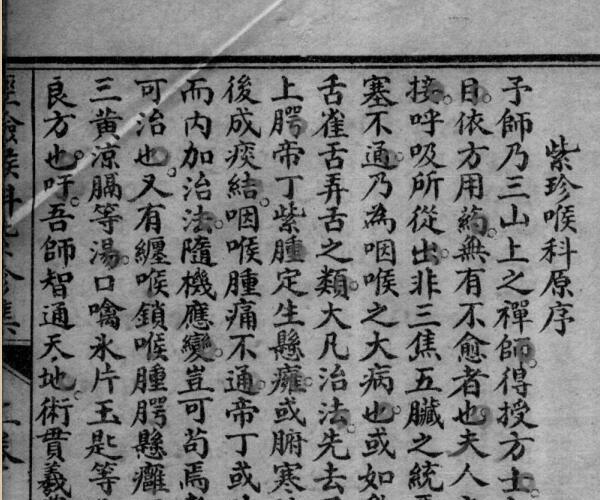 紫珍喉科原序
予師乃三山上之禪師。得授方士。
目。依方用葯。無有不愈者也。夫人
接。呼吸所從出。非三焦五臟之統
塞不通。乃為咽喉之大病也。或如
舌雀舌弄舌之類。大凡治法。先去
上腭帝丁紫腫。定生懸癰。或腑寒
後成痰結。咽喉腫痛不通。帝丁或
而內加治法。隨機應變。豈可苟焉
可治也。又有纏喉鎖喉腫腭懸癰
三黃涼膈等湯。口噙氷片玉匙等
良方也。吁。吾師智通天地。術貫羲
經驗喉科紫珍集